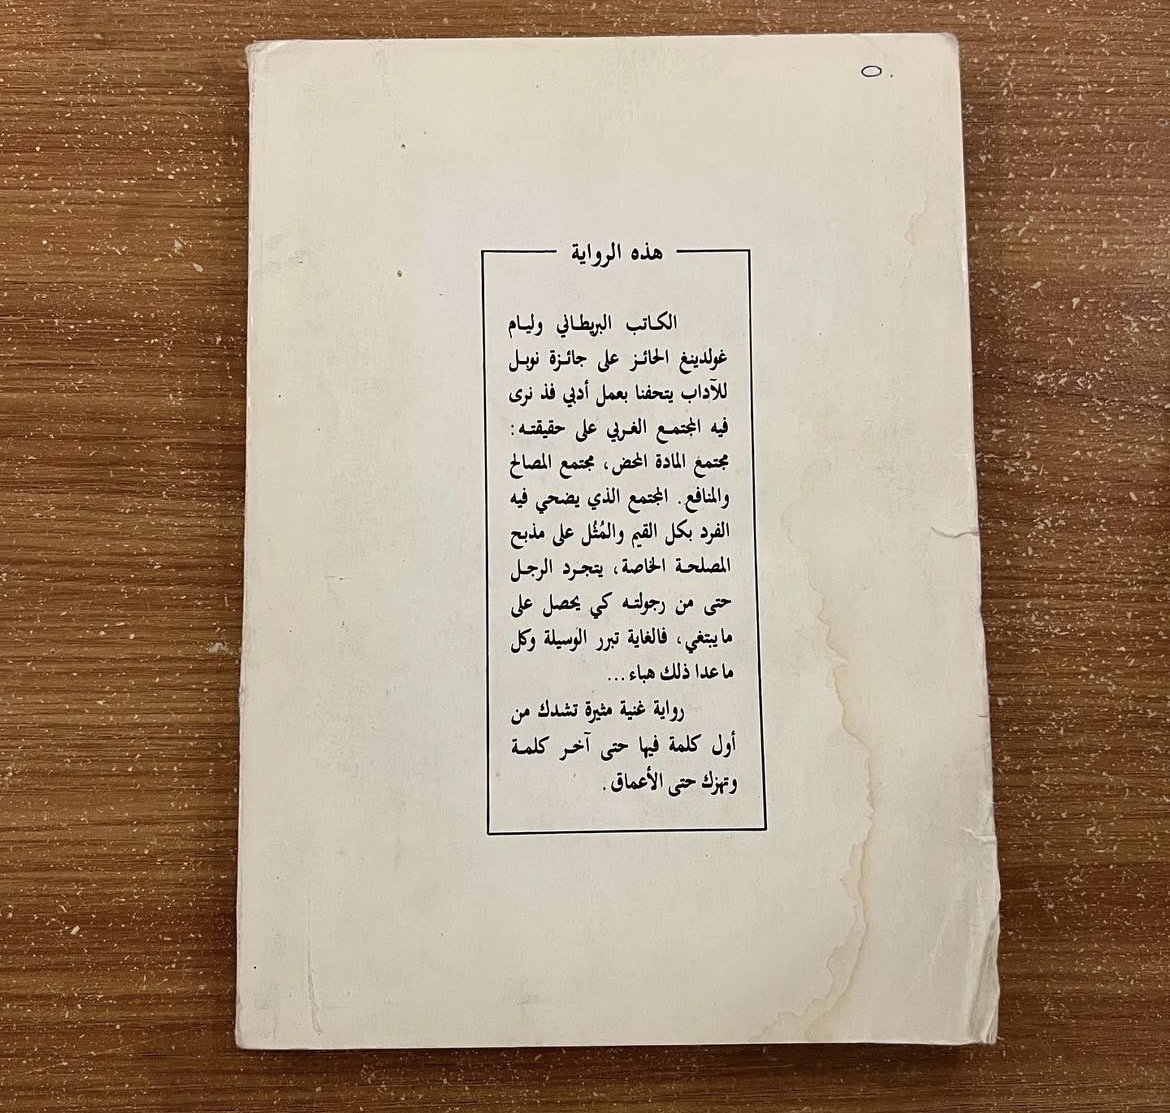 هذه الرواية
الكاتب البريطاني وليام
غولدينغ الحائز على جائزة نوبل
للآداب يتحفنا بعمل أدبي فذ نرى
فيه المجتمع الغربي على حقيقته :
مجتمع المادة المحض، مجتمع المصالح
والمنافع. المجتمع الذي يضحي فيه
الفرد بكل القيم والمُثُل على مذبح
المصلحة الخاصة، يتجرد الرجل
حتى من رجولته كي يحصل على
ما يبتغي، فالغاية تبرر الوسيلة وكل
ما عدا ذلك هباء ...
رواية غنية مثيرة تشدك من
أول كلمة فيها حتى آخر كلمة
وتهزك حتى الأعماق .